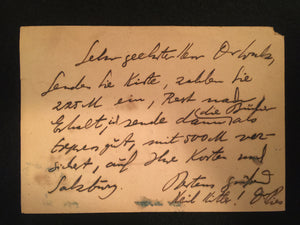 Sehr geehrter Herr Dr
Senden Sie Kiste, zahlen Sie
225 M ein, Rest nach
Erhalt, ich sende dann als
Expressgut, mit 500 M ver-
sichert, auf Ihre Kosten und
Salzburg.
Bestens grüßend
Heil Hitler!